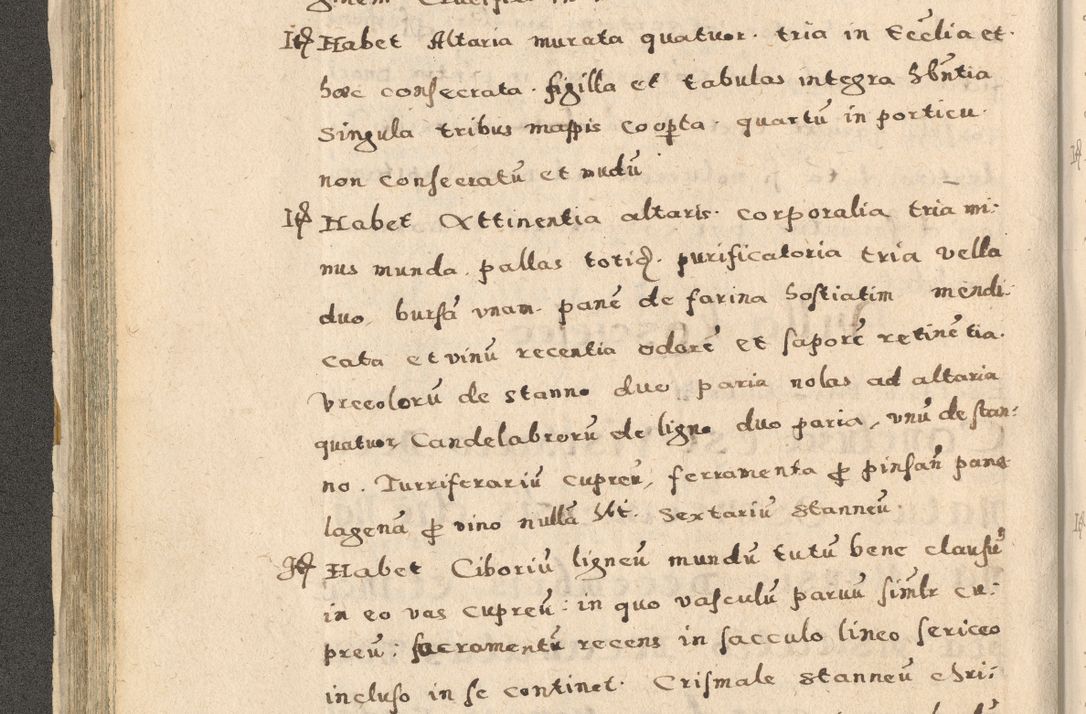 Itꝫ Habet Altaria murata quatuor. tria in Ecclia et
hæc consecrata. sigilla et tabulas integra hbntia
Singula tribus mappis coopta. quartū in porticu
non consecratū et nudū
Itꝫ Habet Attinentia altaris. corporalia tria mi:
nus munda. pallas totiꝫ. purificatoria tria vella
duo, bursā vnam. panē de farina hostiatim mendi:
cata et vinū recentia odorē et saporē retinētia.
Vrceolorū de stanno duo paria nolas ad altaria
quatuor, Candelabrorū de ligno duo paria, vnū de stan:
no. Turriferariū cupreū, ferramenta ꝓ pinsan̄ pane
lagenā ꝓ vino nullā hbt. Sextariū stanneū
Itꝫ Habet Ciboriū ligneū mundū tutū bene clausū
in eo vas cupreū: in quo vasculū paruū simlr cu:
preū: sacramentū recens in sacculo lineo sericeo
incluso in se continet. Crismale stanneū chri: